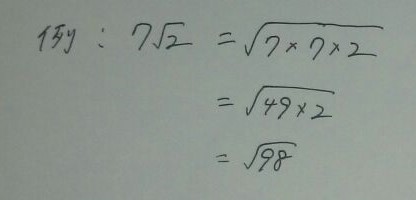 例 : 7√2 = √7×7×2
= √49×2
= √98